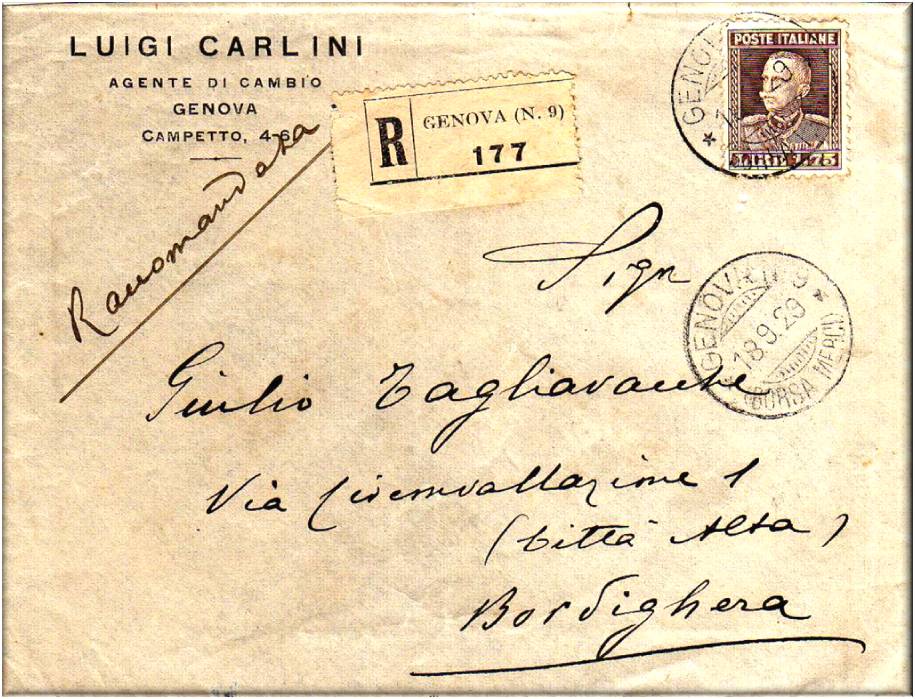 LUIGI CARLINI
AGENTE DI CAMBIO
GENOVA
CAMPETTO, 4-6
Raccomandata
R
GENOVA (N. 9)
177
POSTE ITALIANE
GENOV
Sign
GENOVA N 9
18.9.29
(BORSA MERCI)
Giulio Tagliavacche
Via Circonvallazione 1
(Città Alta)
Bordighera